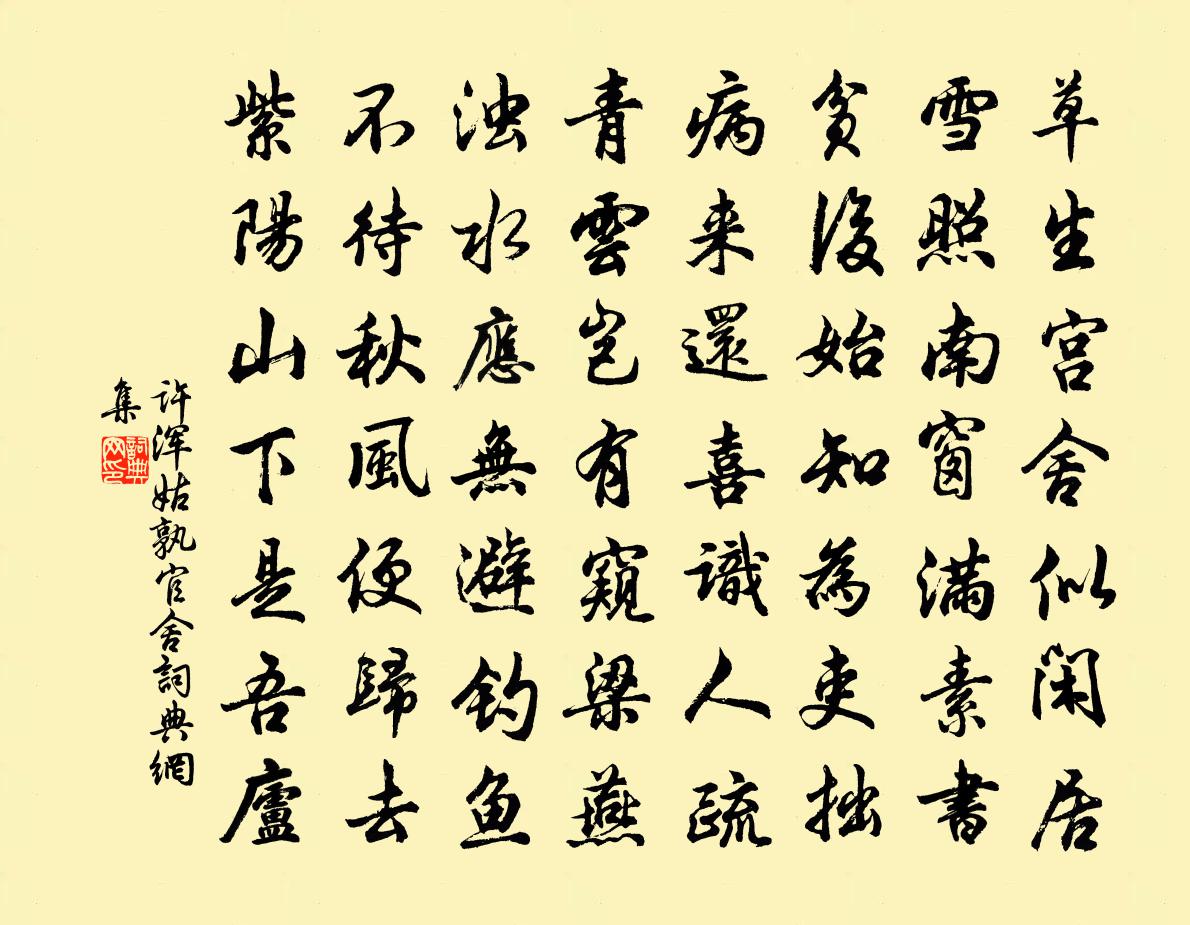 草生宫舍似闲居
雪照南窗滿素書
貧後始知為吏拙
病来還喜識人疏
青雲豈有窺梁燕
浊水應無避钓鱼
不待秋風便歸去
紫陽山下是吾廬
许浑姑孰官舍詞典網
集
詞典网印